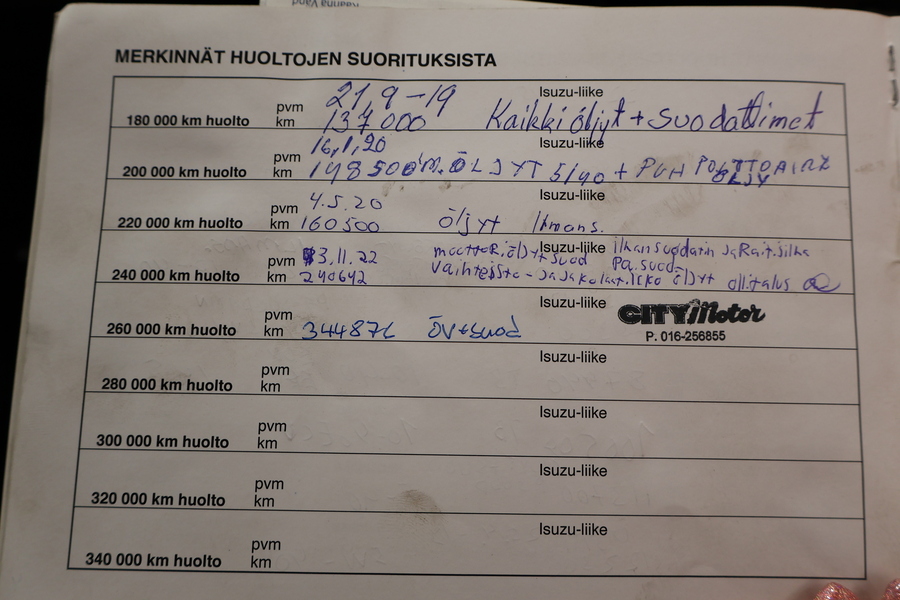 MERKINNÄT HUOLTOJEN SUORITUKSISTA
Isuzu-liike
pvm 21.9-19
180 000 km huolto km 137000 Kaikki öljyt + suodattimet
Isuzu-liike
pvm 16.1.20
200 000 km huolto km 148500 M.ÖLJYT 5/40 + PUH POLTTOAINE
ÖLJY
Isuzu-liike
pvm 4.5.20
220 000 km huolto km 160500 öljyt Ilmans.
Isuzu-liike
pvm 3.11.22 moottoriöljyt suod ilmansuodatin ja Rait.silke
240 000 km huolto km 240642 Vaihteisto- ja jakolaat.ikö öljyt ollitalus
Pa.suod.
Isuzu-liike
CITY Motor
pvm
260 000 km huolto km 344876 öv+suod
P. 016-256855
Isuzu-liike
pvm
280 000 km huolto km
Isuzu-liike
pvm
300 000 km huolto km
Isuzu-liike
pvm
320 000 km huolto km
Isuzu-liike
pvm
340 000 km huolto km